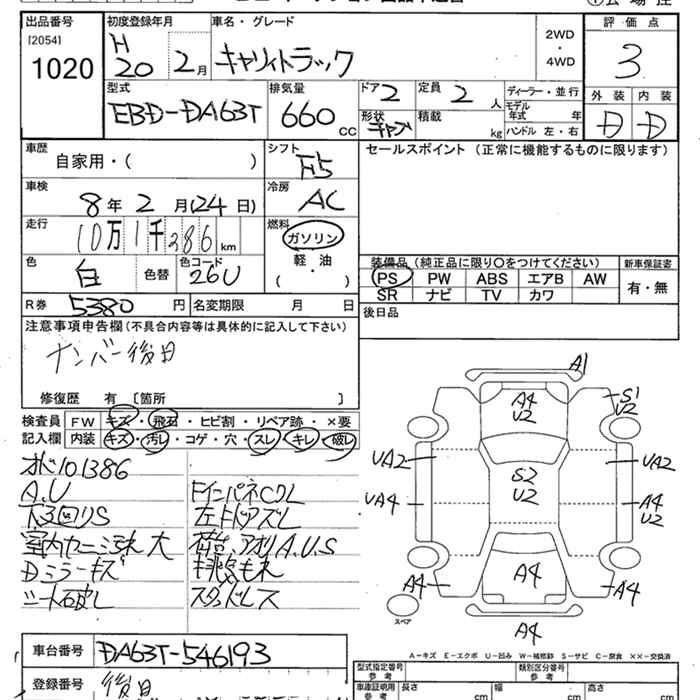 出品番号
[2054]
1020
初度登録年月
H
20 2月
車名・グレード
キャリィトラック
2WD
・
4WD
評価点
3
外装 内装
D D
型式
EBD-DA63T
排気量
660 CC
ドア 2
定員 2 人
形状 キャブ
積載 kg
ディーラー・並行
モデル年式 年
ハンドル 左・右
車歴
自家用・( )
シフト
F5
セールスポイント (正常に機能するものに限ります)
車検
8年 2月(24日)
冷房
AC
走行
10万1千386 km
燃料
ガソリン
軽・油
( )
色
白 色替
色コード
26U
装備品 (純正品に限り○をつけてください)
PS PW ABS エアB AW
SR ナビ TV カワ
新車保証書
有・無
R券 5380 円
名変期限 月 日
後日品
注意事項申告欄(不具合内容等は具体的に記入して下さい)
ナンバー後日
修復歴 有 〔箇所 〕
検査員
記入欄
FW キズ・飛石・ヒビ割・リペア跡・×要
内装 キズ・汚レ・コゲ・穴・スレ・キレ・破レ
オド101386
A.U
下回りS
室内カーミ汚れ大
Dミラーキズ
シート破レ
ドインパネCワレ
左ドアズレ
荷台、アオリA.U.S
排気もれ
スタッドレス
A1
A4
U2
S1
U2
UA2
S2
U2
UA2
UA4
A4
U2
A4
A4
A4
A4
スペア
A-キズ E-エクボ U-凹み W-補修跡 S-サビ C-腐食 ××-交換済
車台番号 DA63T-546193
登録番号 後日
型式指定番号
参考
類別区分番号
参考
車庫証明用
参考
長さ cm
幅 cm
高さ cm